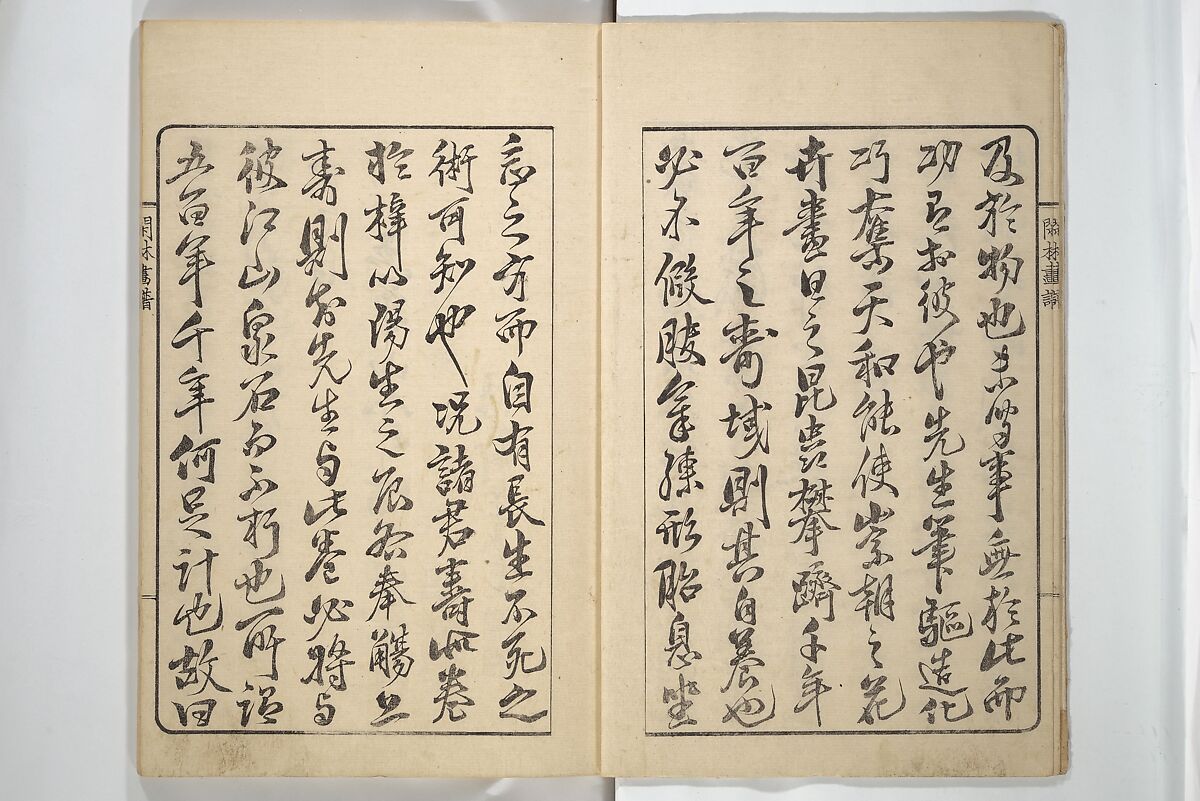 及於物也未曾事無於此而
功有於彼也先生筆驅造化
巧奪天和能使崇朝之花
卉盡日之昆虫攀躋千年
百年之壽域則其自養也
必不假 餐錬形胎息坐
忘之方而自有長生不死之
術可知也況諸君壽此卷
於梓以湯生之辰各奉觴上
壽則知先生与此卷必将与
彼江山泉石而不朽也所謂
五百年千年何足計也故曰
閑林畫譜
閑林畫譜